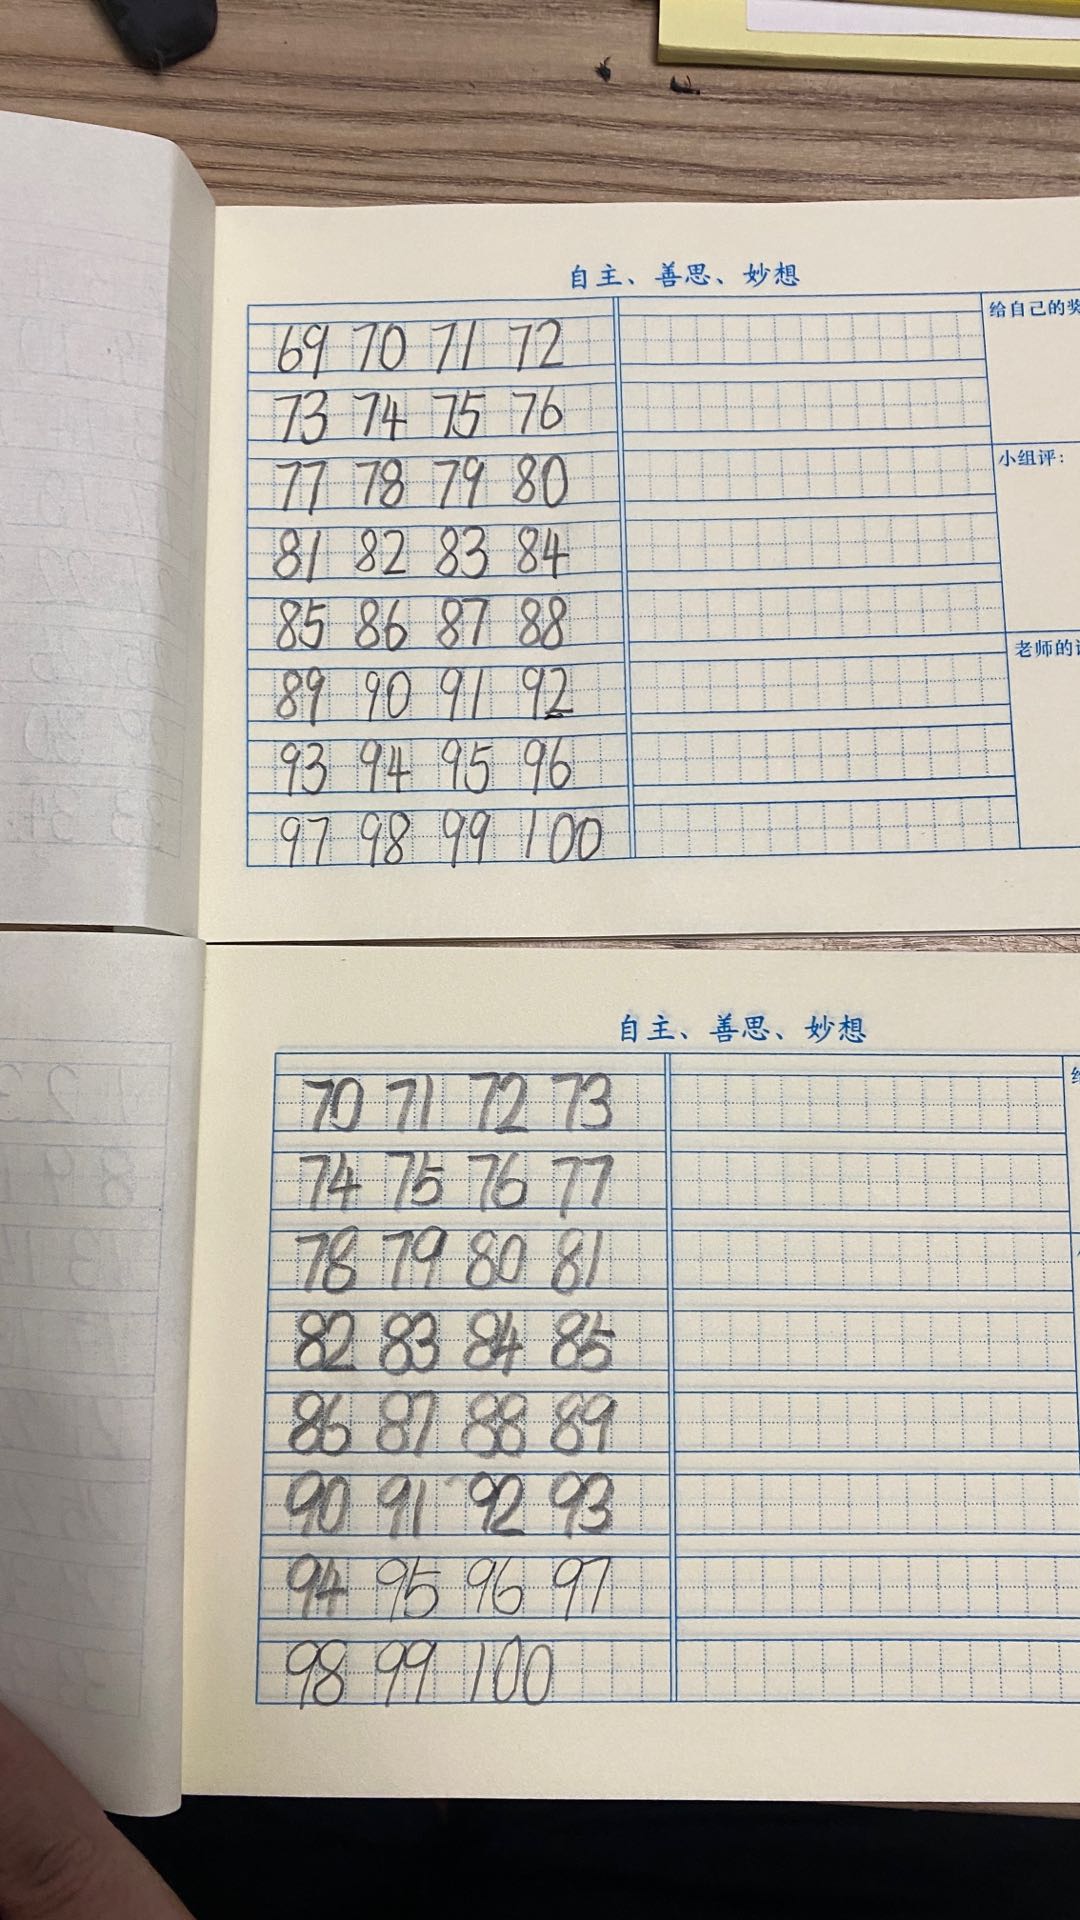 自主、善思、妙想
给自己的奖
69 70 71 72
73 74 75 76
77 78 79 80
小组评：
81 82 83 84
85 86 87 88
老师的
89 90 91 92
93 94 95 96
97 98 99 100
自主、善思、妙想
70 71 72 73
74 75 76 77
78 79 80 81
82 83 84 85
86 87 88 89
90 91 92 93
94 95 96 97
98 99 100